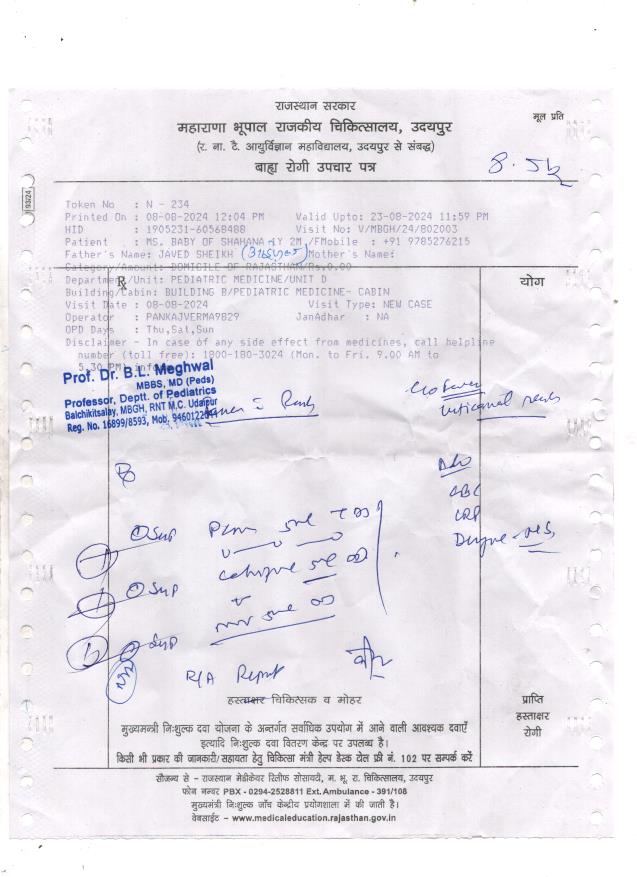 राजस्थान सरकार
मूल प्रति
महाराणा भूपाल राजकीय चिकित्सालय, उदयपुर
(र. ना. टै. आयुर्विज्ञान महाविद्यालय, उदयपुर से संबद्ध)
बाह्य रोगी उपचार पत्र
8.5k
93/24
Token No : N - 234
Printed On : 08-08-2024 12:04 PM Valid Upto: 23-08-2024 11:59 PM
HID : 1905231-60568488 Visit No: V/MBGH/24/802003
Patient : MS. BABY OF SHAHANA 1Y 2M /F Mobile : +91 9785276215
Father's Name: JAVED SHEIKH Mother's Name:
Category/Amount: DOMICILE OF RAJASTHAN/Rs.0.00
Department/Unit: PEDIATRIC MEDICINE/UNIT D
योग
Building/Cabin: BUILDING B/PEDIATRIC MEDICINE- CABIN
Visit Date : 08-08-2024 Visit Type: NEW CASE
Operator : PANKAJVERMA9829 JanAdhar : NA
OPD Days : Thu,Sat,Sun
Disclaimer - In case of any side effect from medicines, call helpline
number (toll free): 1800-180-3024 (Mon. to Fri. 9.00 AM to
5.30 PM)
Prof. Dr. B.L. Meghwal
MBBS, MD (Peds)
Professor, Deptt. of Pediatrics
Balchikitsalay, MBGH, RNT M.C. Udaipur
Reg. No. 16899/8593, Mob.
c/o fever
Rash
Adv
Rx
CBC
CRP
① Syp
Dengue
① Syp
Syp
R/A Report
हस्ताक्षर चिकित्सक व मोहर
प्राप्ति
हस्ताक्षर
रोगी
मुख्यमन्त्री निःशुल्क दवा योजना के अन्तर्गत सर्वाधिक उपयोग में आने वाली आवश्यक दवाएँ
इत्यादि निःशुल्क दवा वितरण केन्द्र पर उपलब्ध है।
किसी भी प्रकार की जानकारी/सहायता हेतु चिकित्सा मंत्री हेल्प डेस्क टोल फ्री नं. 102 पर सम्पर्क करें
सौजन्य से - राजस्थान मेडीकेयर रिलीफ सोसायटी, म. भू. रा. चिकित्सालय, उदयपुर
फोन नम्बर PBX - 0294-2528811 Ext. Ambulance - 391/108
मुख्यमन्त्री निःशुल्क जाँच केन्द्रीय प्रयोगशाला में की जाती है।
वेबसाईट - www.medicaleducation.rajasthan.gov.in